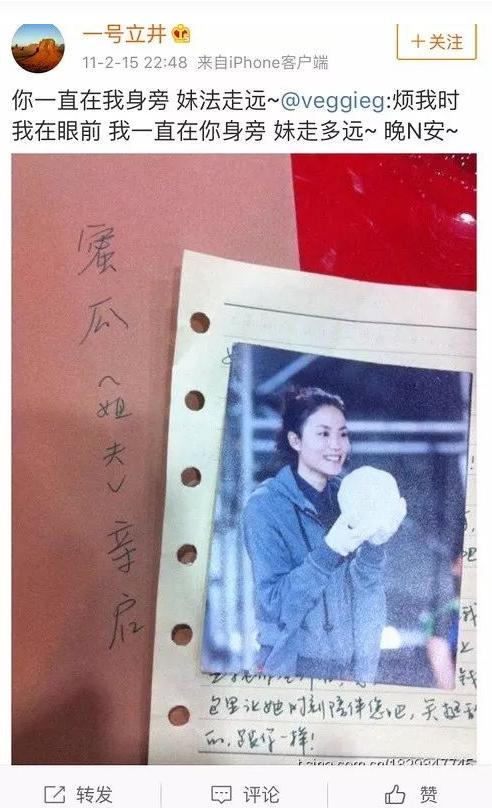 一号立井
+关注
11-2-15 22:48 来自iPhone客户端
你一直在我身旁 妹法走远~@veggieg:烦我时
我在眼前 我一直在你身旁 妹走多远~ 晚N安~
蜜瓜(姐夫)亲启
包里让她时刻陪伴您吧,笑起来
的,跟你一样!
转发 评论 赞